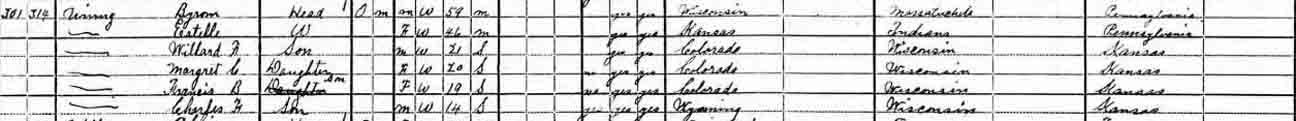 301 314 Vining Byrom Head O m m W 59 m yes yes Wisconsin Massatuchets Pennsylvania
— Estelle W F W 46 m yes yes Kansas Indiana Pennsylvania
— Willard F Son m W 21 S yes yes Colorado Wisconsin Kansas
— Margret C Daughter F W 20 S no yes yes Colorado Wisconsin Kansas
— Francis B Daughter Son F W 19 S no yes yes Colorado Wisconsin Kansas
— Charles F Son m W 14 S yes yes yes Wyoming Wisconsin Kansas